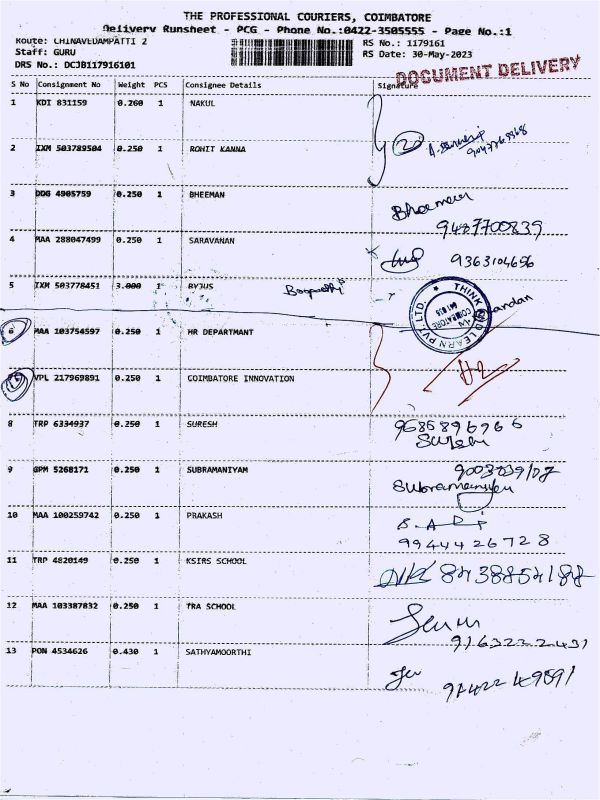 THE PROFESSIONAL COURIERS, COIMBATORE
Delivery Runsheet - PCG - Phone No.:0422-3505555 - Page No.:1
Route: CHINAVEDAMPATTI 2 RS No.: 1179161
Staff: GURU RS Date: 30-May-2023
DRS No.: DCJB117916101
DOCUMENT DELIVERY
S No Consignment No Weight PCS Consignee Details Signature
1 KDI 831159 0.260 1 NAKUL
2 IXM 503789504 0.250 1 ROHIT KANNA 2
3 DOG 4905759 0.250 1 BHEEMAN Bheeman
9487700839
4 MAA 288047499 0.250 1 SARAVANAN 9363104656
5 IXM 503778451 3.000 1 BYJUS
THINK AND LEARN PVT. LTD.
COIMBATORE
6 MAA 103754597 0.250 1 HR DEPARTMANT
VPL 217969891 0.250 1 COIMBATORE INNOVATION
8 TRP 6334937 0.250 1 SURESH
Suresh
9 GPM 5268171 0.250 1 SUBRAMANIYAM
Subramaniyam
10 MAA 100259742 0.250 1 PRAKASH
9944426728
11 TRP 4820149 0.250 1 KSIRS SCHOOL
12 MAA 103387832 0.250 1 TRA SCHOOL
9163232431
13 PON 4534626 0.430 1 SATHYAMOORTHI